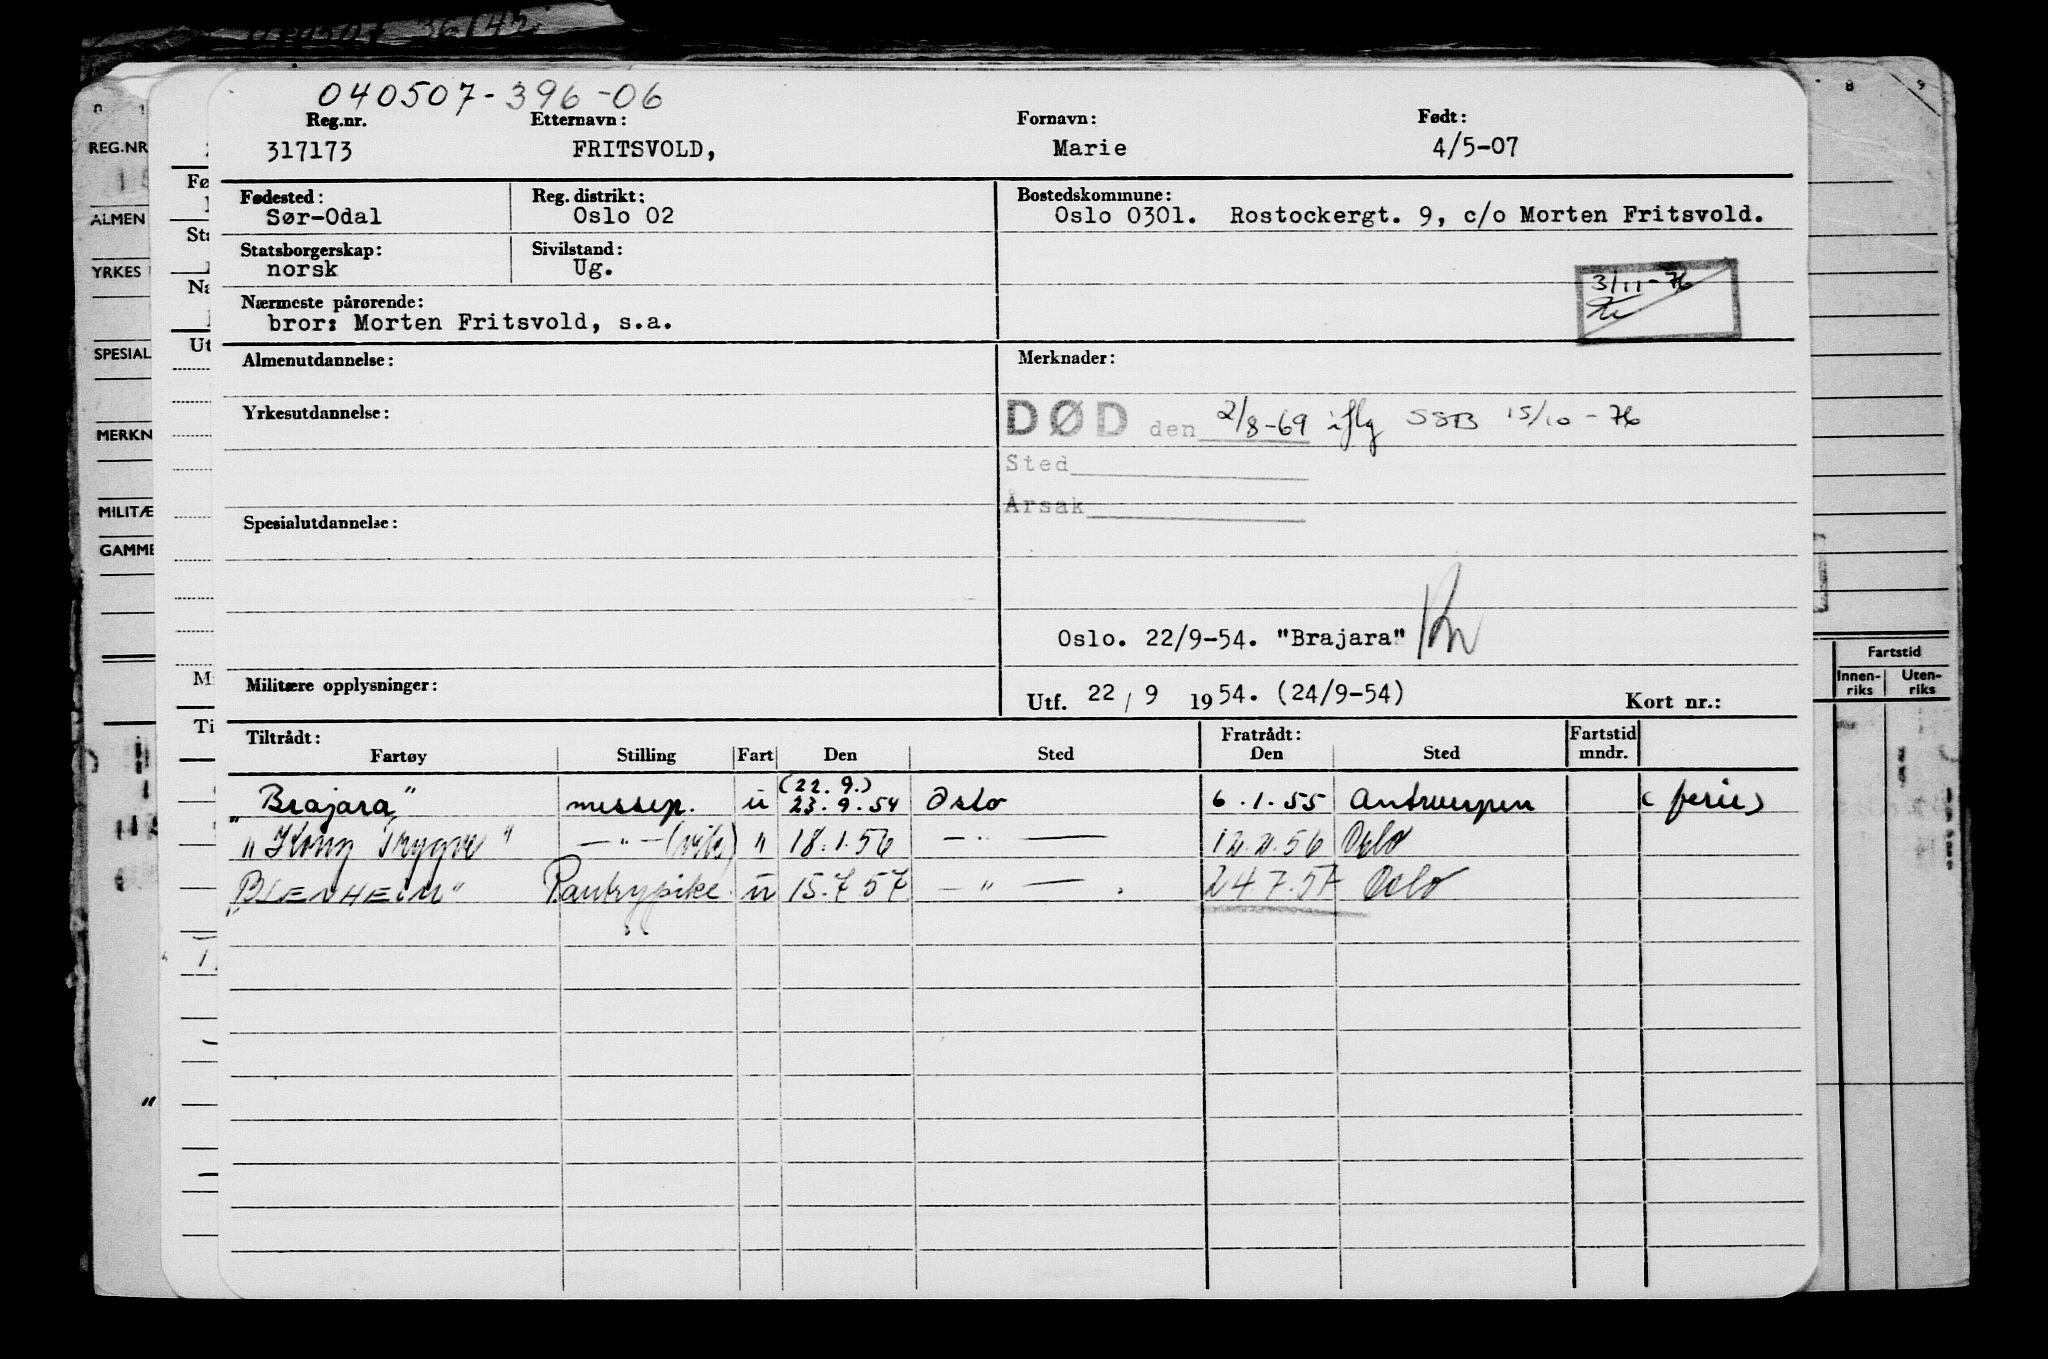 040507-396-06
Reg.nr. Etternavn: Fornavn: Født:
317173 FRITSVOLD, Marie 4/5-07
Fødested: Reg. distrikt: Bostedskommune:
Sør-Odal Oslo 02 Oslo 0301. Rostockergt. 9, c/o Morten Fritsvold.
Statsborgerskap: Sivilstand:
norsk Ug.
3/11-76
Nærmeste pårørende:
bror: Morten Fritsvold, s.a.
Almenutdannelse: Merknader:
Yrkesutdannelse:
DØD den 2/8-69 iflg SSB 15/10-76
Sted
Årsak
Spesialutdannelse:
Oslo. 22/9-54. "Brajara"
Militære opplysninger:
Utf. 22 / 9 1954. (24/9-54) Kort nr.:
Tiltrådt: Fratrådt: Fartstid
Fartøy Stilling Fart Den Sted Den Sted mndr.
(22.9.)
"Brajara" messep. u 23.9.54 Oslo 6.1.55 Antwerpen (ferie)
"Kong Trygve" —"— (vik) " 18.1.56 —"— 12.2.56 Oslo
"BLENHEIM" Pantrypike u 15.7 57 —"— 24.7.57 Oslo
REG.NR
ALMEN
YRKES
SPESIAL
MERKN
MILITÆ
GAMME
Fø
Sta
Na
Ut
M
Ti
8 9
Fartstid
Innen-
riks
Uten-
riks